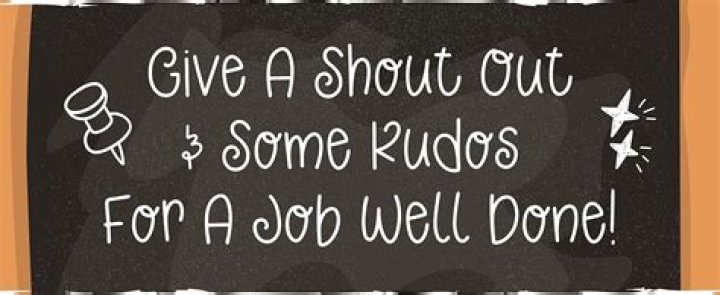 Give A Shout Out
& Some Kudos
For A Job Well Done!